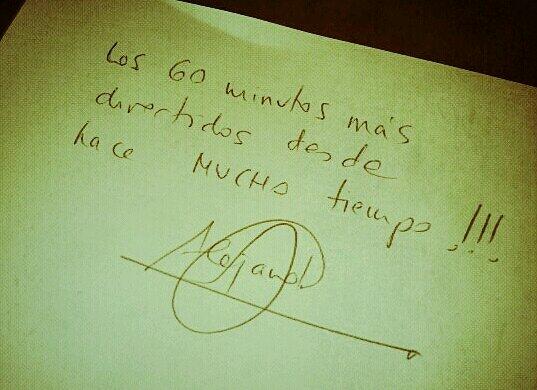 Los 60 minutos más
divertidos desde
hace MUCHO tiempo!!!